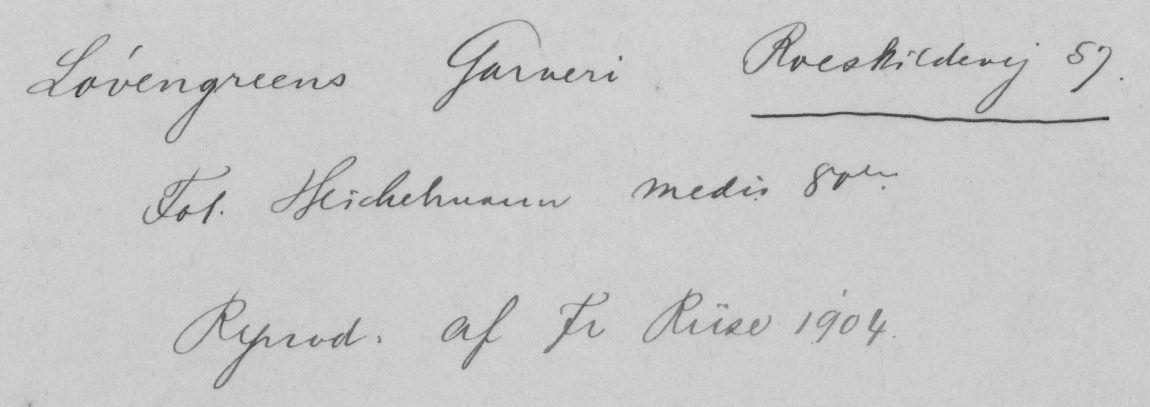 Lövengreens Garveri Roeskildevej 57.
Fot. Heichelmann medio 80er.
Reprod. af Fr Riise 1904.